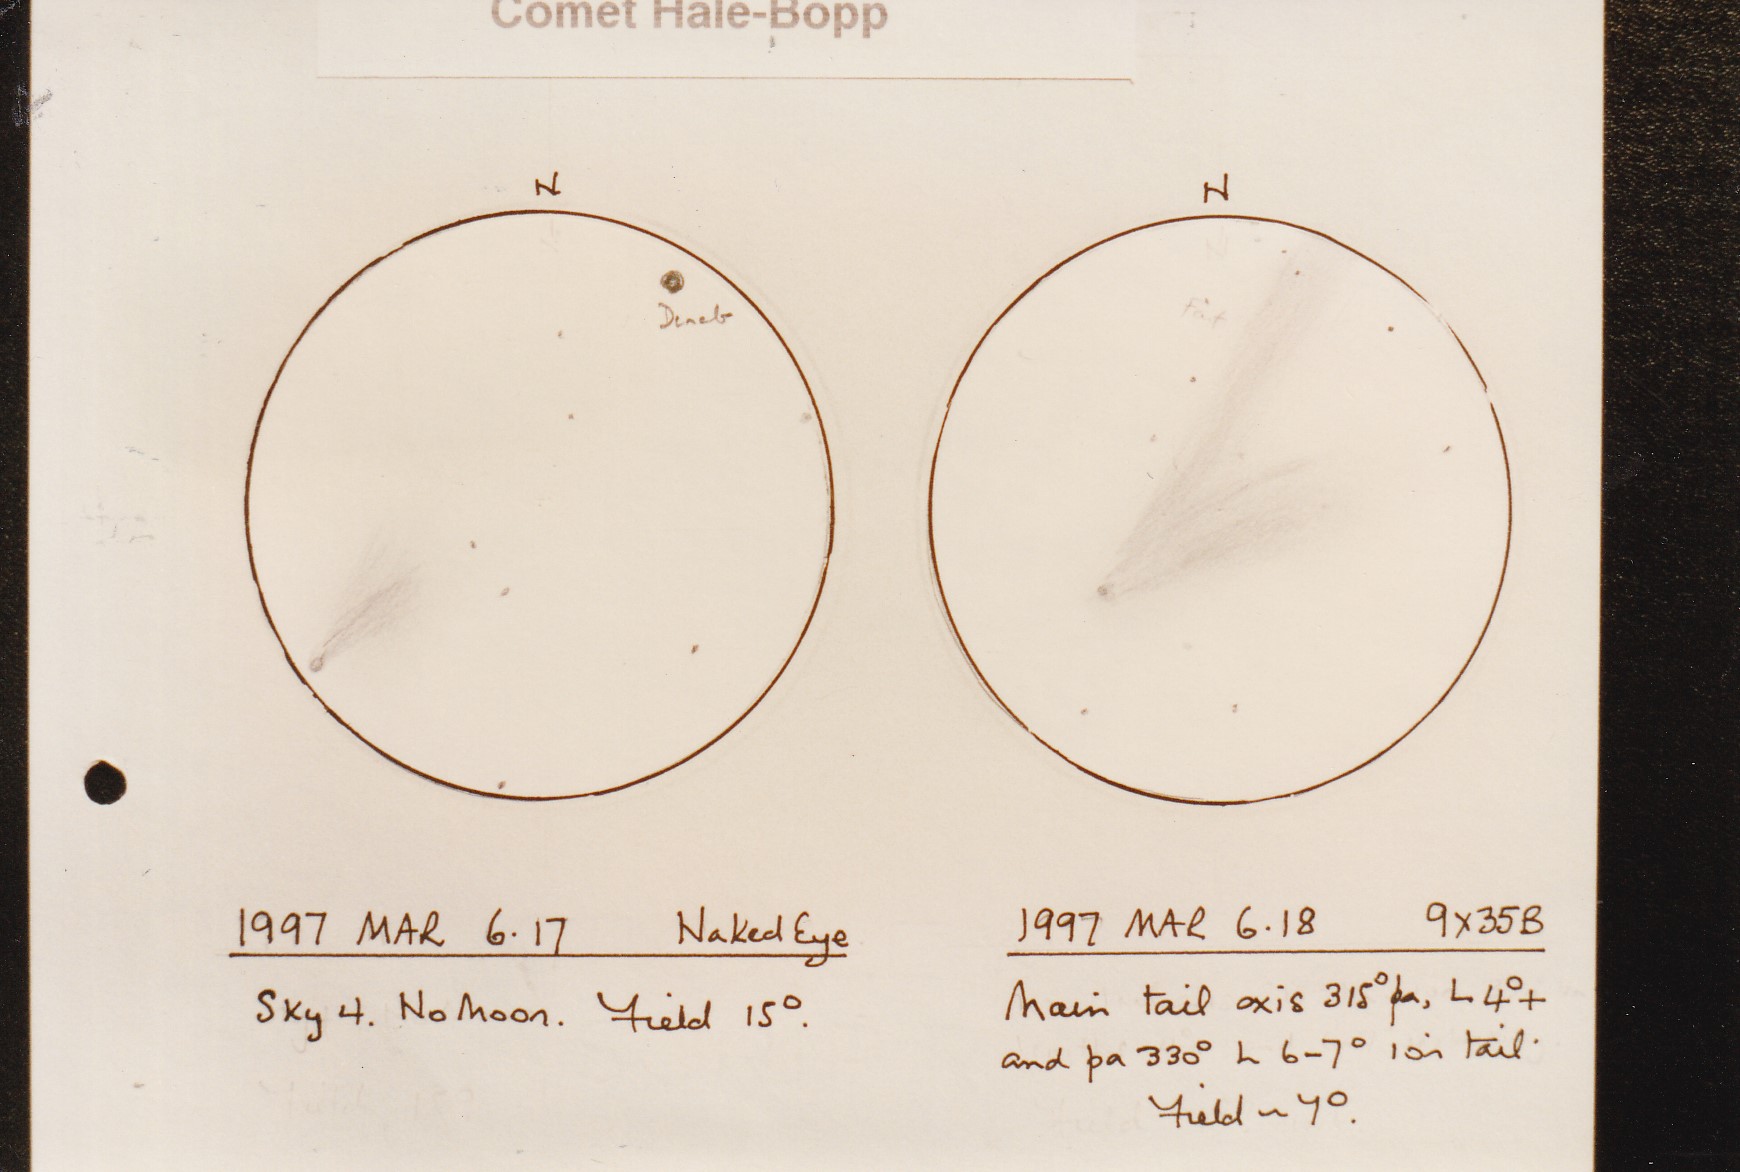 Comet Hale-Bopp
N
N
Deneb
Faint
1997 MAR 6.17 Naked Eye
Sky 4. No Moon. Field 15°.
1997 MAR 6.18 9x35B
Main tail axis 315° pa, L 4°+
and pa 330° L 6-7° ion tail.
Field ~ 7°.